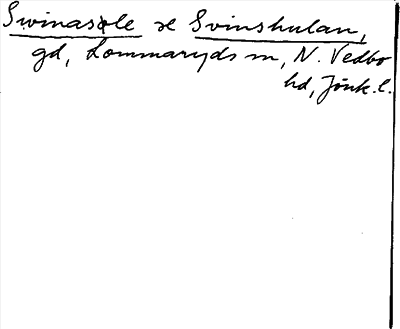 Swinasole se Svinshulan,
gd, Lommaryds sn, N. Vedbo
hd, Jönk. l.